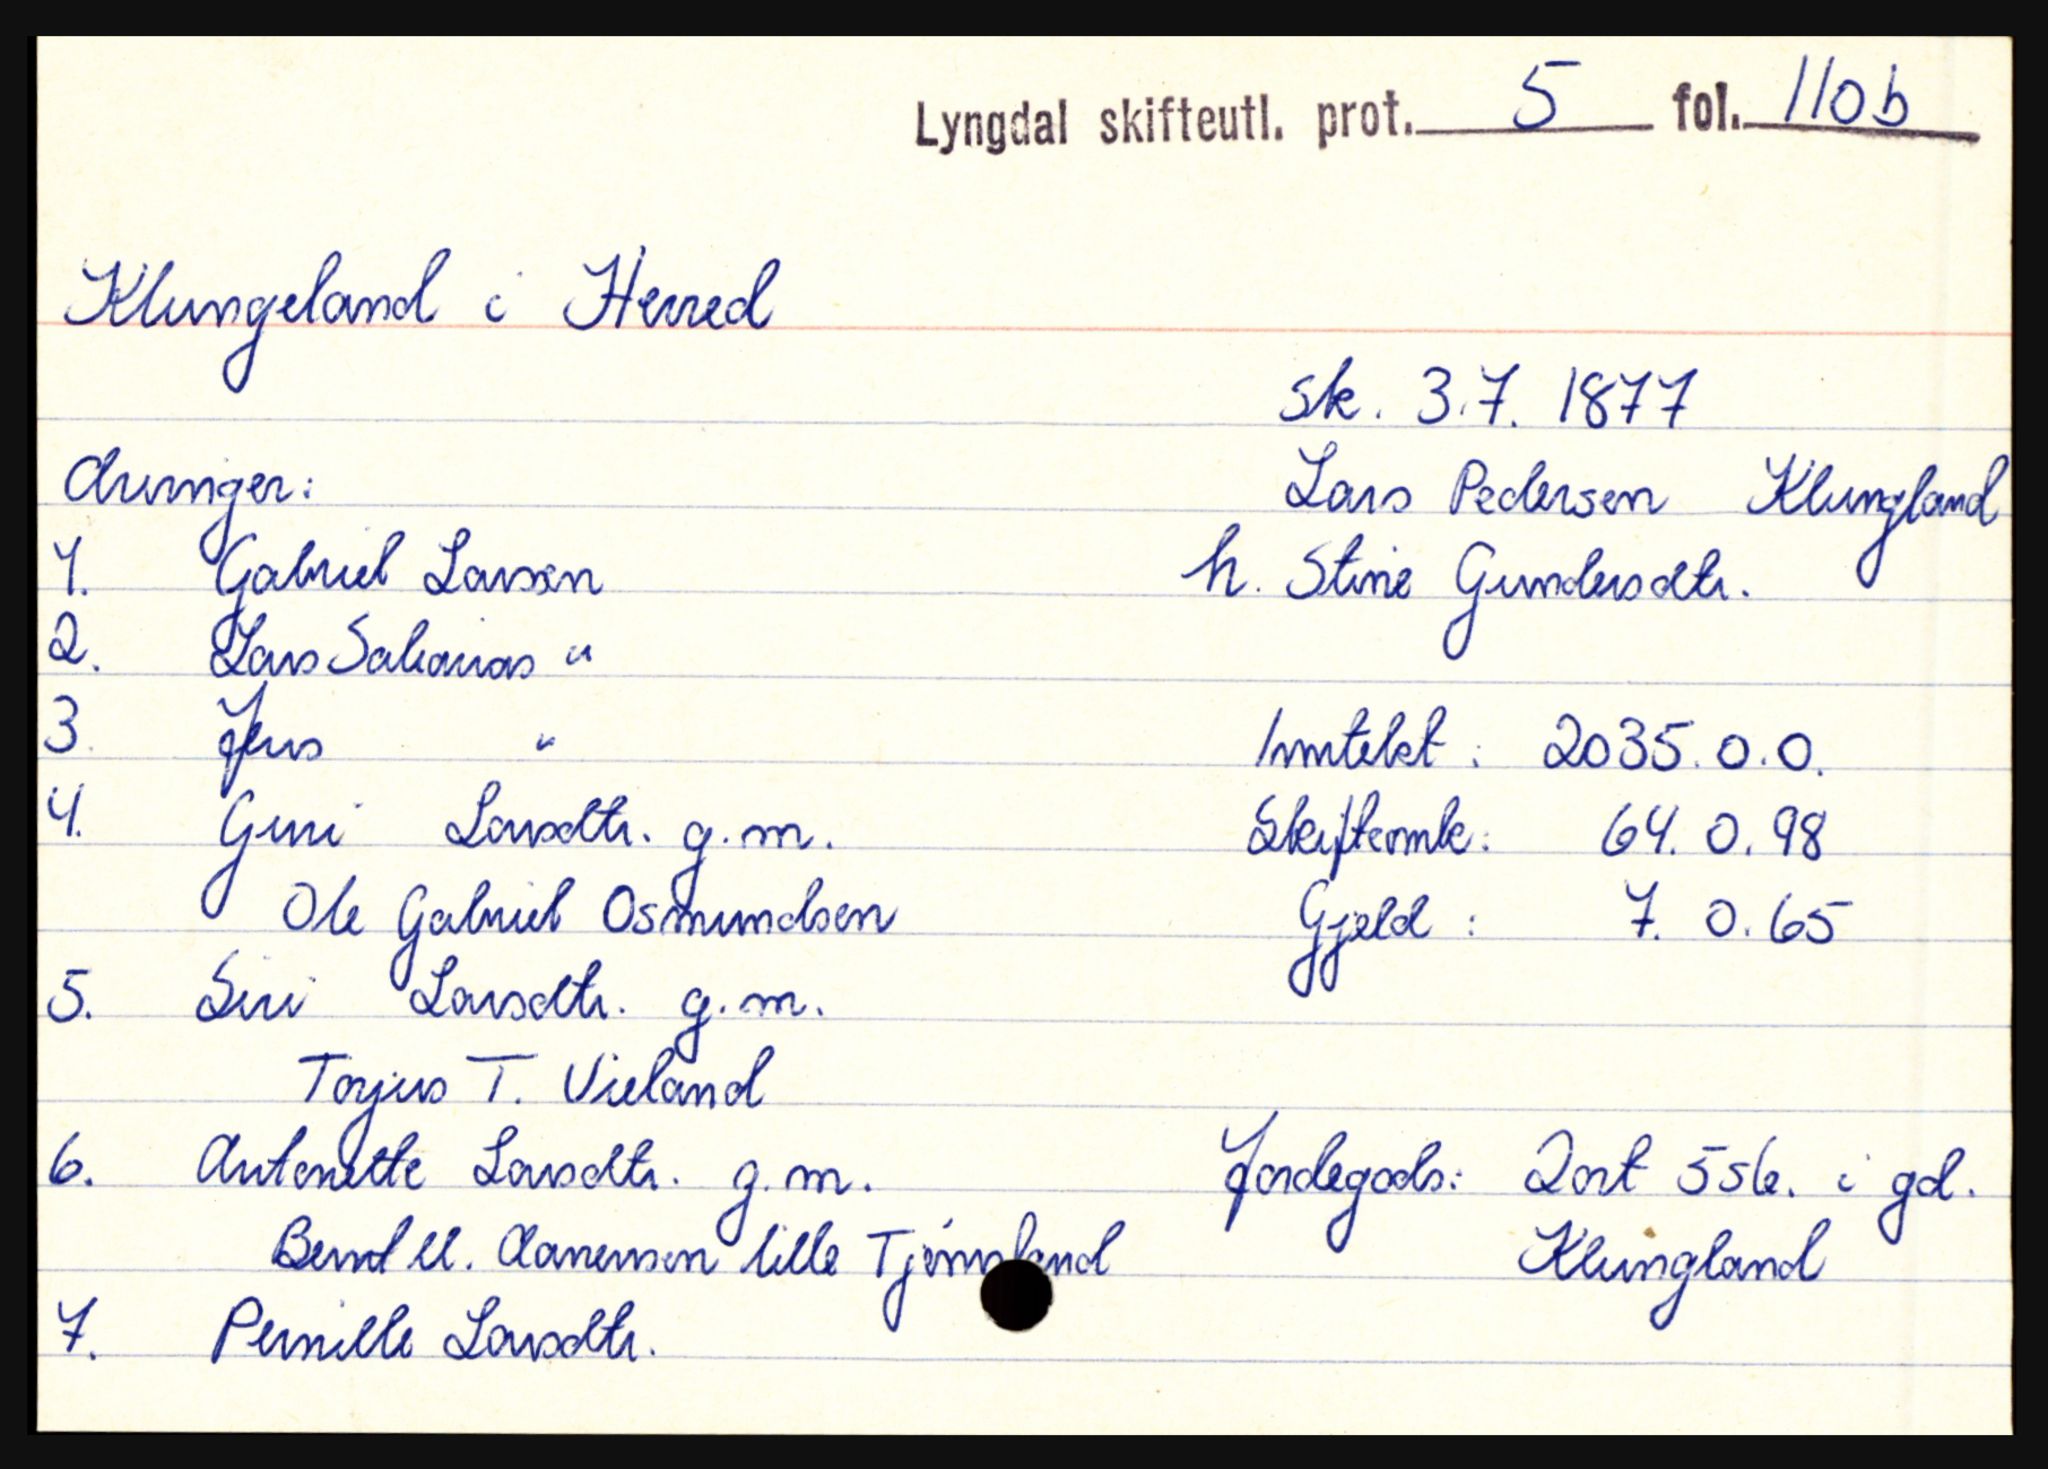 Lyngdal skifteutl. prot. 5 fol. 110b
Klungeland i Herred
sk. 3.7. 1877
Arvinger:
Lars Pedersen Klungland
1. Gabriel Larsen
h. Stine Gundersdtr.
2. Lars Sakarias "
3. Jens "
Inntekt : 2035.0.0.
4. Guri Larsdtr. g.m.
Skifteomk: 64.0.98
Ole Gabriel Osmundsen
Gjeld : 7. 0.65
5. Siri Larsdtr. g.m.
Torjus T. Vieland
6. Antonette Larsdtr. g.m.
Jordegods: 2ort 5sk. i gd.
Klungland
Bernt M. Aanensen lille Tjømsland
7. Pernille Larsdtr.